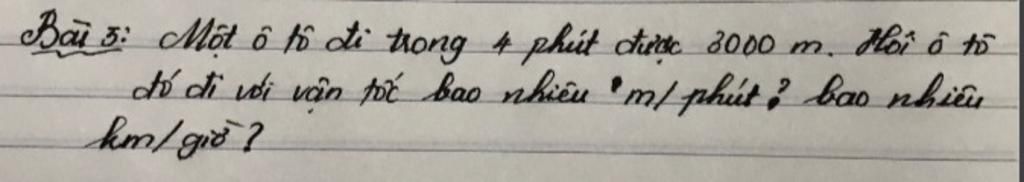 Bài 3: Một ô tô đi trong 4 phút được 3000 m. Hỏi ô tô
đó đi với vận tốc bao nhiêu m/phút? bao nhiêu
km/giờ?